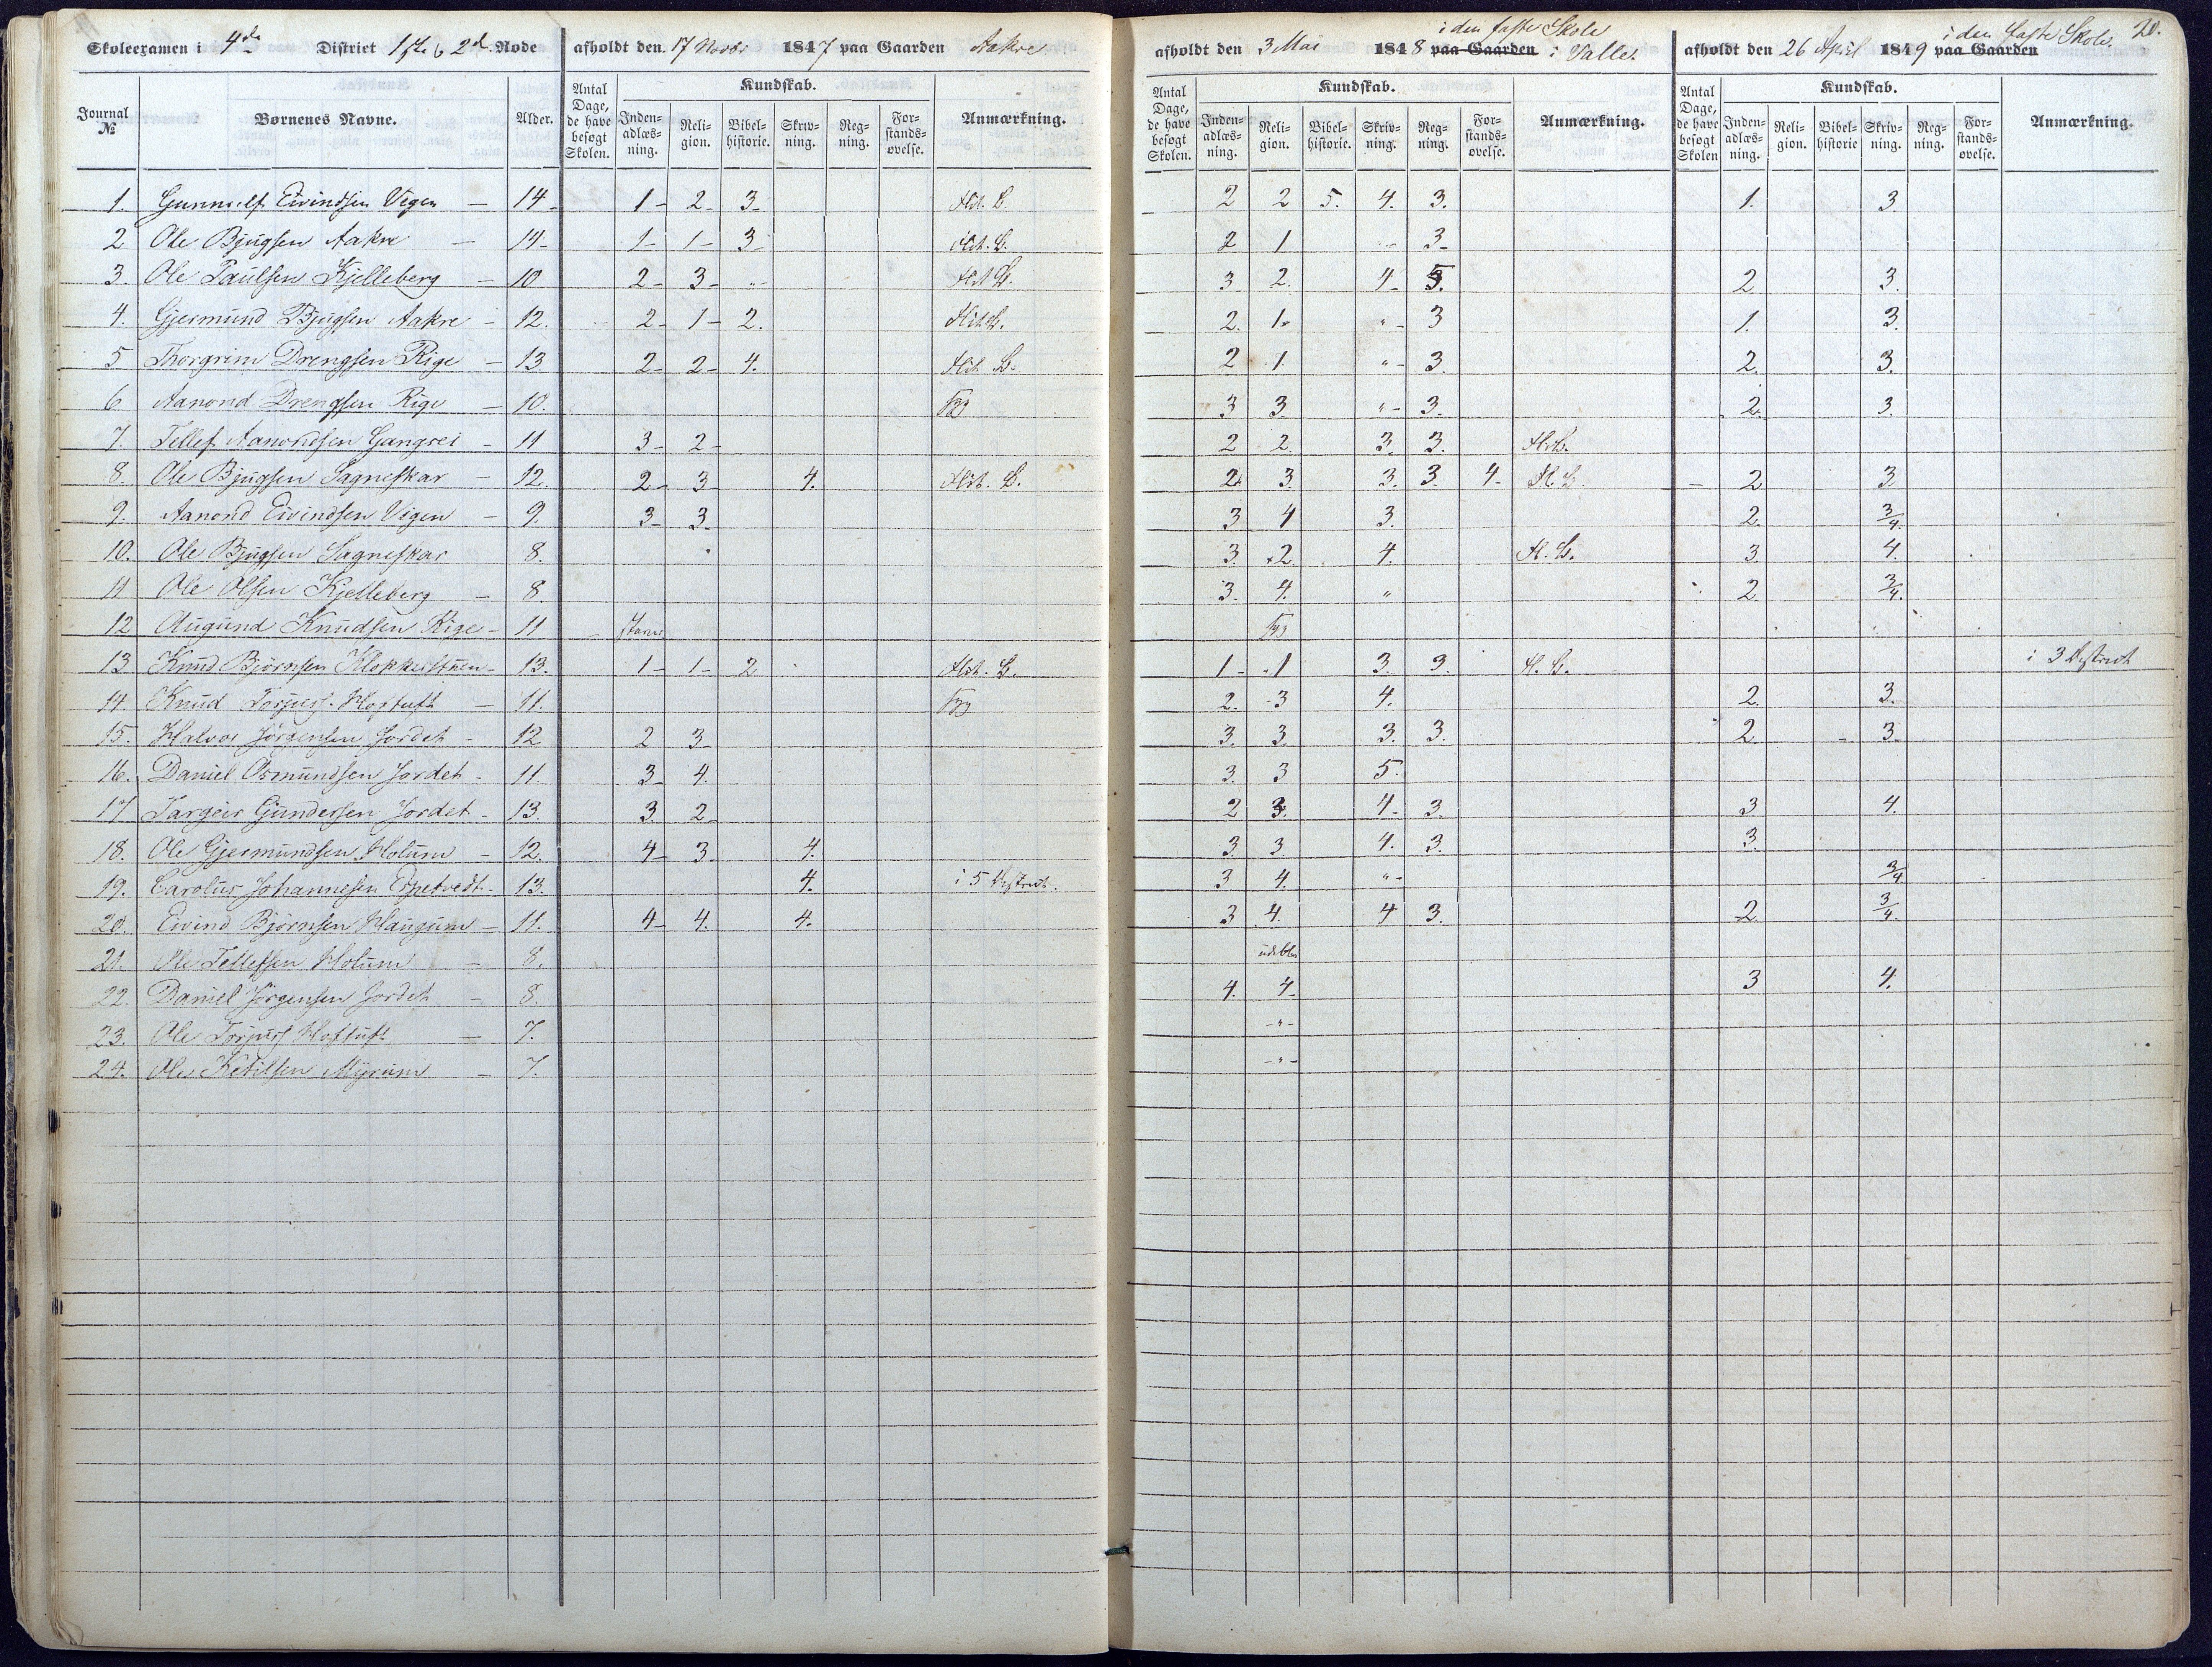 Skoleexamen i 4de District 1ste & 2d. Rode afholdt den 17 Novbr 1847 paa Gaarden Aakre
afholdt den 3 Mai 1848 paa Gaarden i den faste Skole i Valle.
afholdt den 26 April 1849 paa Gaarden i den faste Skole. 20.
Journal № Børnenes Navne. Alder. Antal Dage, de have besøgt Skolen. Kundskab. Inden-adlæs-ning. Reli-gion. Bibel-historie. Skriv-ning. Reg-ning. For-stands-øvelse. Anmærkning.
Antal Dage, de have besøgt Skolen. Kundskab. Inden-adlæs-ning. Reli-gion. Bibel-historie. Skriv-ning. Reg-ning. For-stands-øvelse. Anmærkning.
Antal Dage, de have besøgt Skolen Kundskab. Inden-adlæs-ning. Reli-gion. Bibel-historie Skriv-ning. Reg-ning. For-stands-øvelse. Anmærkning.
1. Gunnulf Eivindsen Vigen – 14 1 – 2 – 3 – 2 2 5. 4. 3. 1. 3.
2 Ole Bjugsen Aakre – 14 1 – 1 – 3 – 2 1 " 3 –
3. Ole Paulsen Kjelleberg – 10 2 – 3 – " 3 2. 4 – 3. 2. 3.
4. Gjermund Bjugsen Aakre – 12. 2 – 1 – 2. 2. 1. " 3 1. 3.
5 Thorgrim Drengsen Rige – 13 2 – 2 – 4. 2 1. " 3. 2. 3.
6 Aanond Drengsen Rige – 10. 3 3. " 3. 2. 3.
7. Tellef Aanondsen Gangsei – 11 3 – 2 – 2 2. 3. 3.
8. Ole Bjugsen Sagneskar – 12. 2 – 3 – 4. 2. 3. 3. 3. 4 – 2 3.
9. Aanond Eivindsen Vigen – 9. 3 – 3. 3 4 3. 2. 3/4.
10. Ole Bjugsen Sagneskar 8. 3. 2 4. 3. 4.
11 Ole Olsen Kjelleberg – 8. 3. 4. " 2. 3/4.
12 Augund Knudsen Rige – 11
13 Knud Bjørnsen – 13. 1 – 1 – 2 1 – 1 3. 3. i 3 District
14. Knud Torjus. Hoftuft – 11. 2. 3 4. 2. 3.
15. Halvor Jørgensen Jordet – 12 2 3 – 3. 3. 3. 3. 2. 3.
16. Daniel Osmundsen Jordet – 11. 3 – 4. 3. 3 5.
17 Targeir Gundersen Jordet – 13. 3. 2 – 2 3. 4 – 3. 3 4.
18. Ole Gjermundsen Holum – 12. 4 – 3 – 4. 3. 3. 4. 3. 3.
19. Carolus Johannesen – 13. 4. i 5 District. 3 4. " 3/4
20. Eivind Bjørnsen Haugum – 11. 4 – 4. 4. 3 4. 4 3. 2. 3/4.
21. Ole Tellefsen Holum – 8. udebl.
22. Daniel Jørgensen Jordet – 8. 4. 4 – 3 4.
23. Ole Torjus. Hoftuft – 7. – " –
24. Ole Ketilsen Myrum – 7. – " –